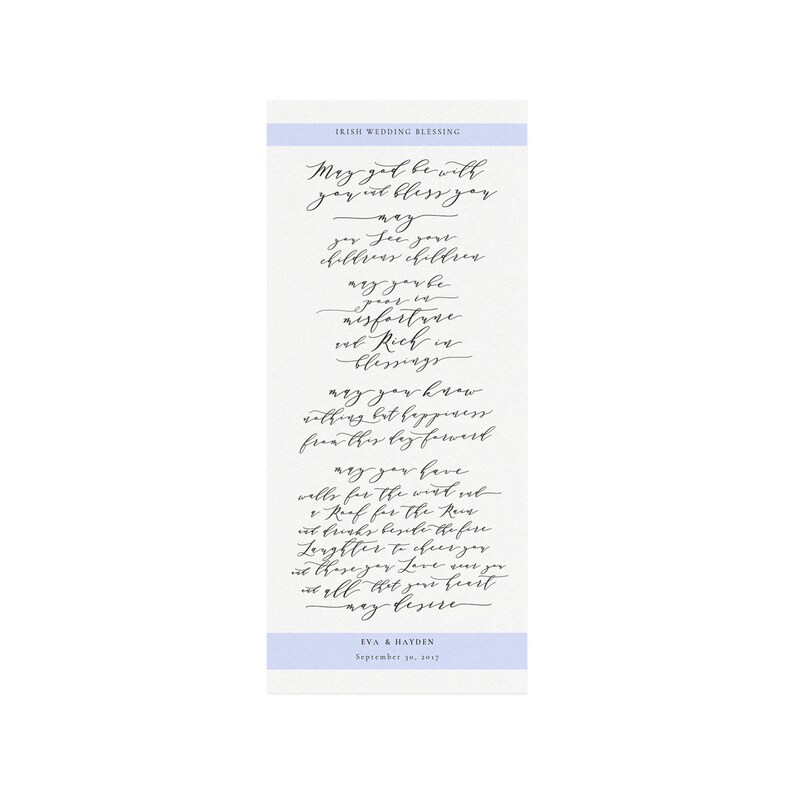 IRISH WEDDING BLESSING
May god be with
you and bless you
may
you See your
childrens children
may you be
poor in
misfortune
and Rich in
blessings
may you know
nothing but happiness
from this day forward
may you have
walls for the wind and
a Roof for the Rain
and drinks beside the fire
Laughter to cheer you
and those you Love near you
and all that your heart
may desire
EVA & HAYDEN
September 30, 2017